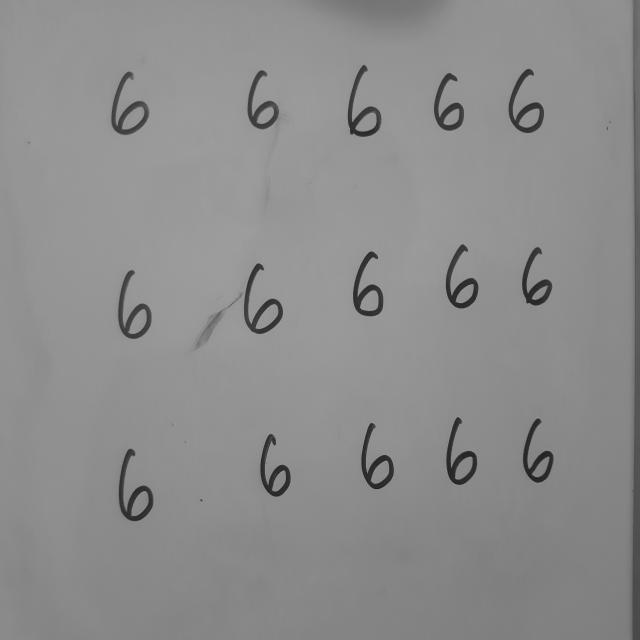 6 6 6 6 6
6 6 6 6 6
6 6 6 6 6